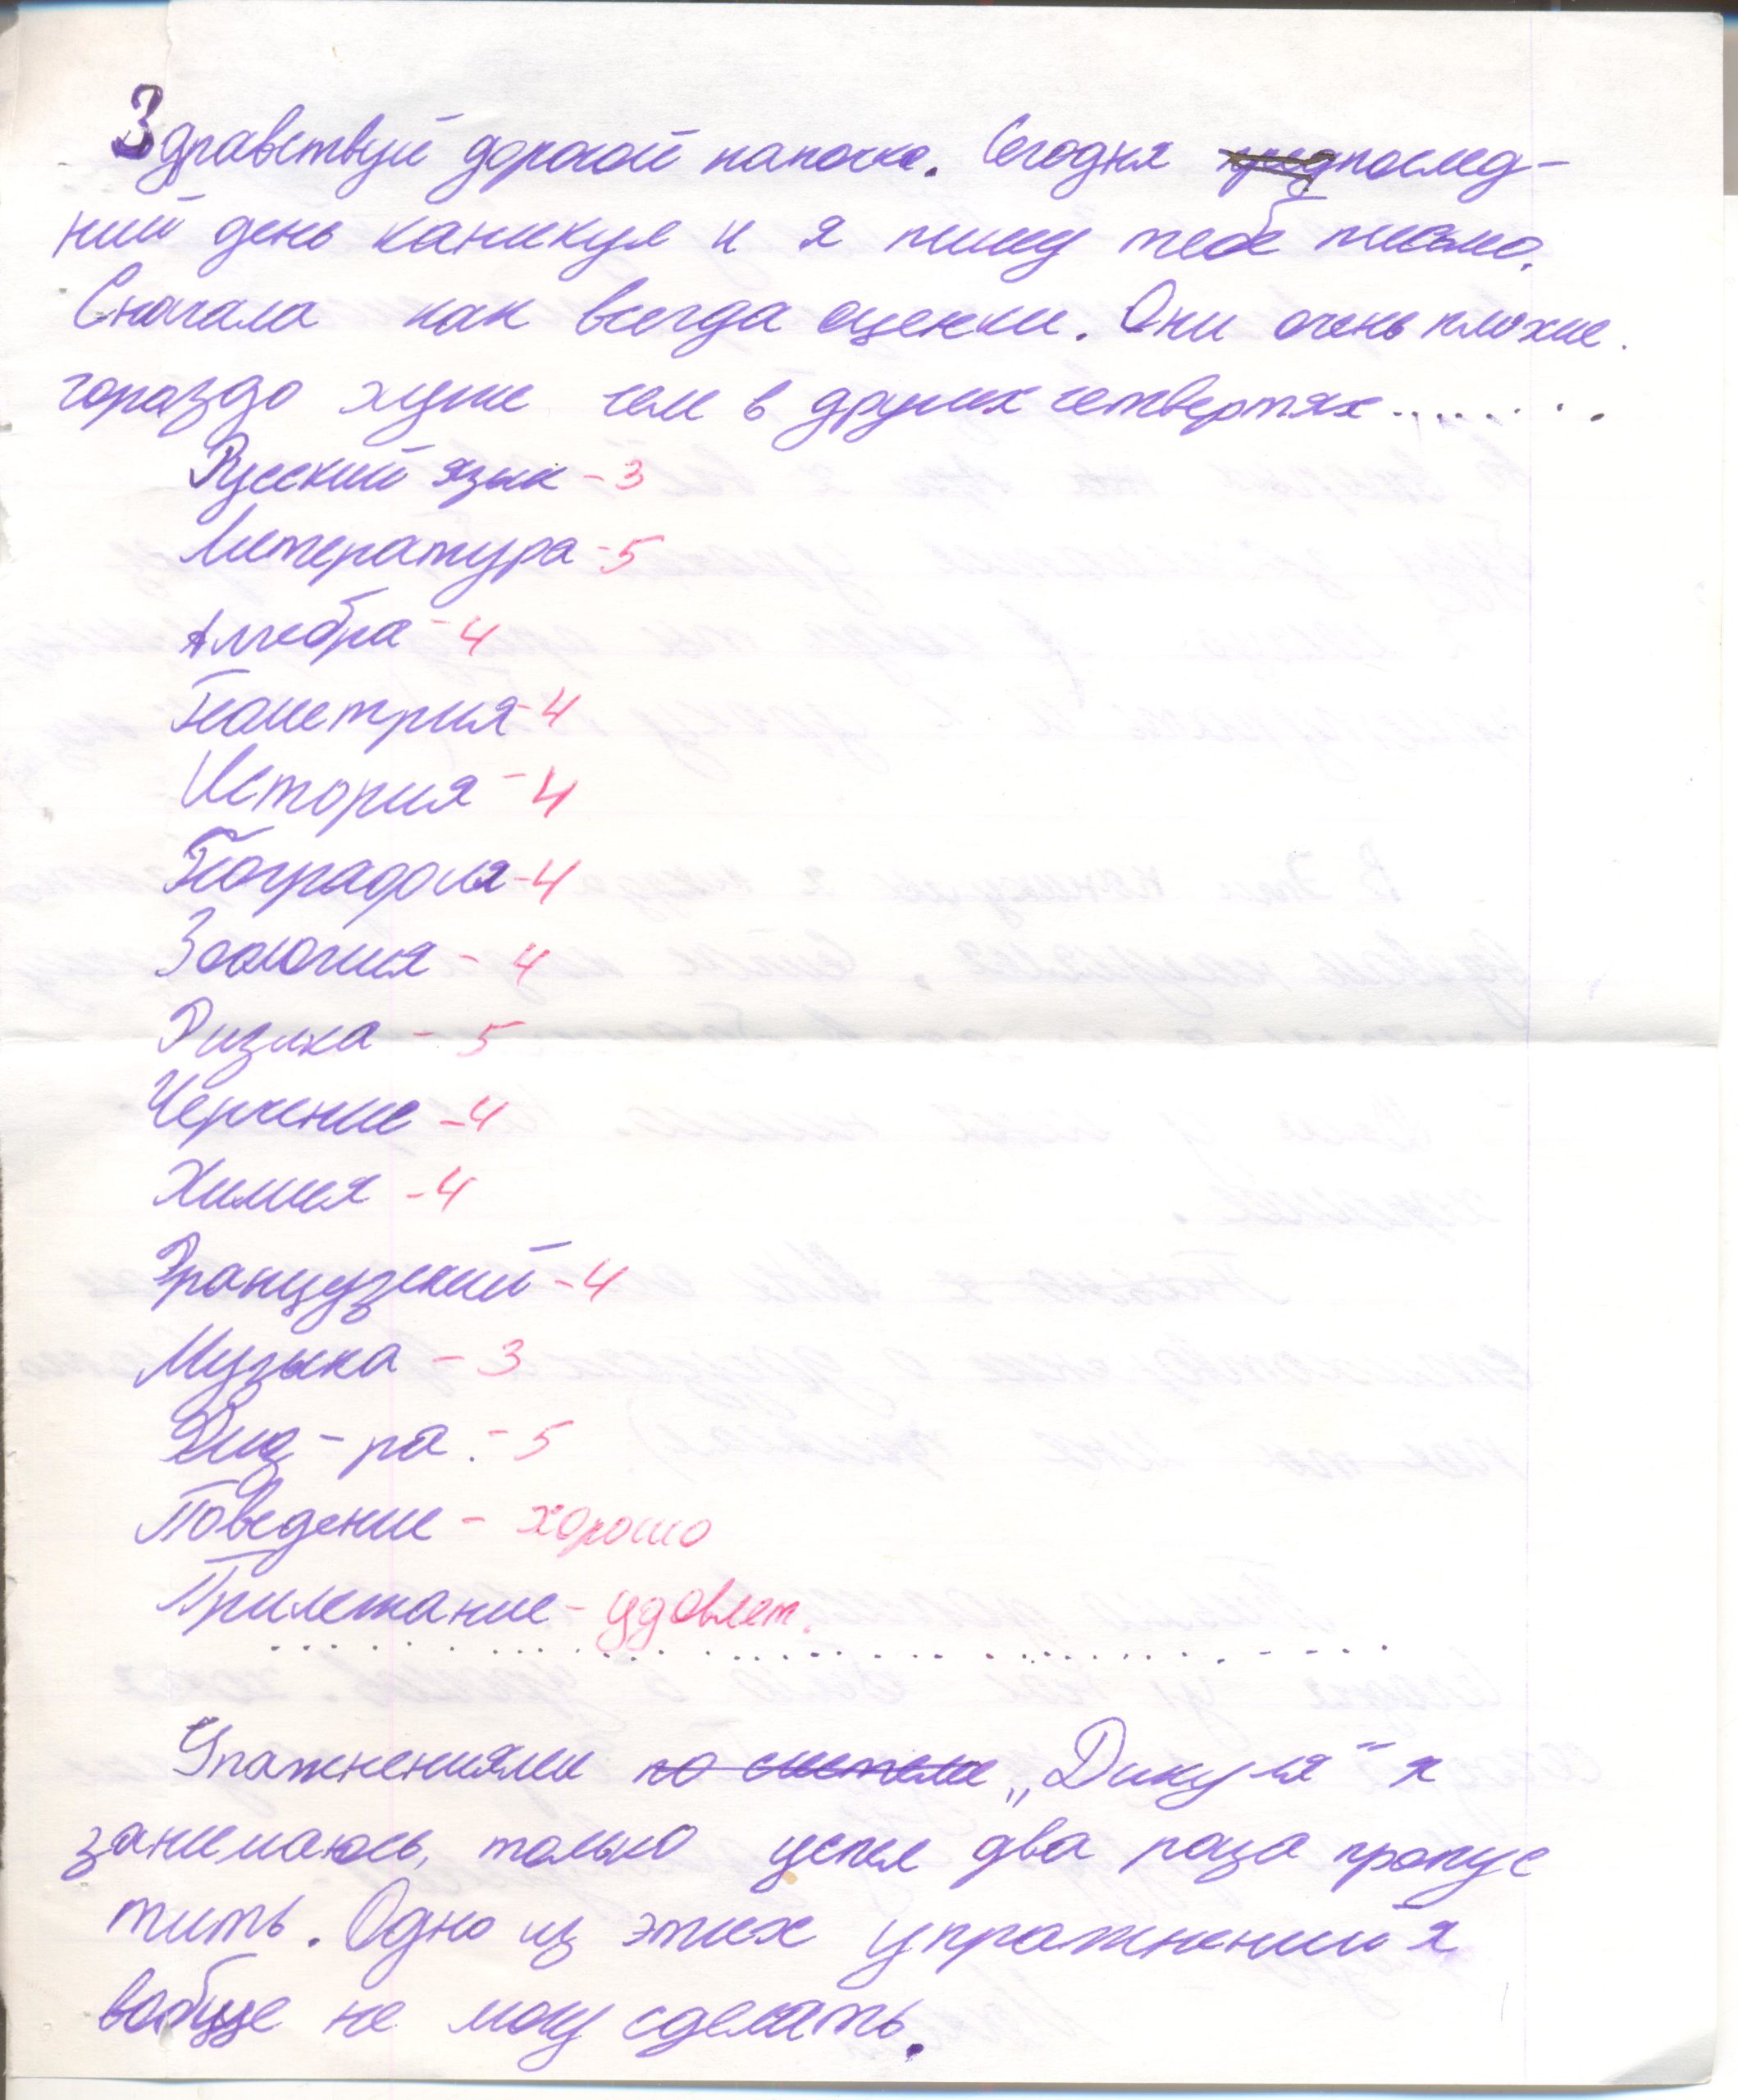 Здравствуй дорогой папочка. Сегодня послед-
ний день каникул и я пишу тебе письмо.
Сначала как всегда оценки. Они очень плохие.
гораздо хуже чем в других четвертях.........
Русский язык - 3
Литература - 5
Алгебра - 4
Геометрия - 4
История - 4
География - 4
Зоология - 4
Физика - 5
Черчение - 4
Химия - 4
Французский - 4
Музыка - 3
Физ-ра. - 5
Поведение - хорошо
Прилежание - удовлет.
Упажнениями по системе „Дикуля" я
занимаюсь, только успел два раза пропус
тить. Одно из этих упражнений я
вобще не могу сделать.